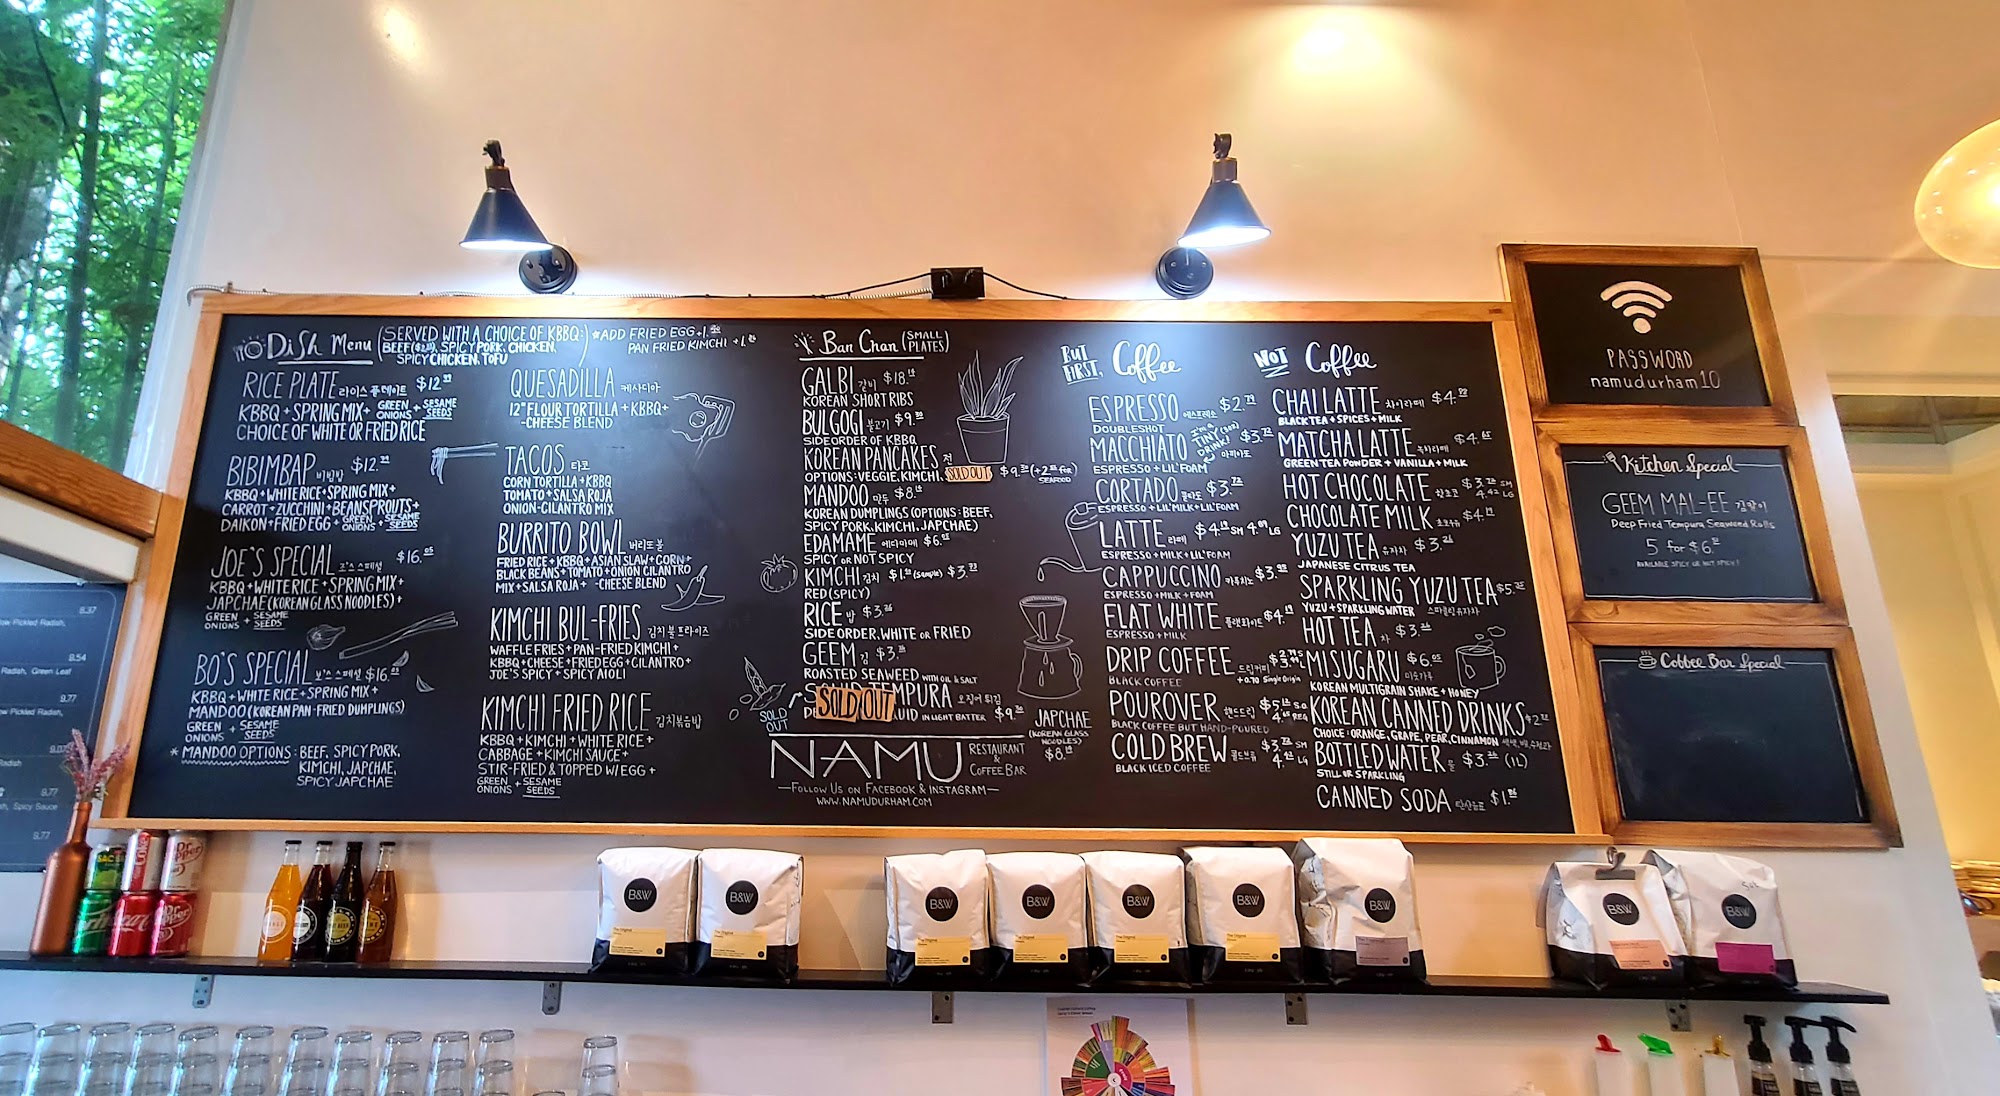 DiSh Menu (SERVED WITH A CHOICE OF KBBQ:
BEEF, SPICY PORK, CHICKEN,
SPICY CHICKEN, TOFU)
*ADD FRIED EGG +1.
PAN FRIED KIMCHI +1.
RICE PLATE 라이스 플레이트 $12.
KBBQ + SPRING MIX + GREEN ONIONS + SESAME SEEDS
CHOICE OF WHITE OR FRIED RICE
BIBIMBAP 비빔밥 $12.
KBBQ + WHITE RICE + SPRING MIX +
CARROT + ZUCCHINI + BEANSPROUTS +
DAIKON + FRIED EGG + GREEN ONIONS + SESAME SEEDS
JOE'S SPECIAL 조's 스페셜 $16.05
KBBQ + WHITE RICE + SPRING MIX +
JAPCHAE (KOREAN GLASS NOODLES) +
GREEN ONIONS + SESAME SEEDS
BO'S SPECIAL 보's 스페셜 $16.05
KBBQ + WHITE RICE + SPRING MIX +
MANDOO (KOREAN PAN-FRIED DUMPLINGS)
GREEN ONIONS + SESAME SEEDS
* MANDOO OPTIONS: BEEF, SPICY PORK,
KIMCHI, JAPCHAE,
SPICY JAPCHAE
QUESADILLA 케사디아
12" FLOUR TORTILLA + KBBQ +
-CHEESE BLEND
TACOS 타코
CORN TORTILLA + KBBQ
TOMATO + SALSA ROJA
ONION-CILANTRO MIX
BURRITO BOWL 버리또 볼
FRIED RICE + KBBQ + ASIAN SLAW + CORN +
BLACK BEANS + TOMATO + ONION CILANTRO
MIX + SALSA ROJA + -CHEESE BLEND
KIMCHI BUL-FRIES 김치 불 프라이즈
WAFFLE FRIES + PAN-FRIED KIMCHI +
KBBQ + CHEESE + FRIED EGG + CILANTRO +
JOE'S SPICY + SPICY AIOLI
KIMCHI FRIED RICE 김치볶음밥
KBBQ + KIMCHI + WHITE RICE +
CABBAGE + KIMCHI SAUCE +
STIR-FRIED & TOPPED W/ EGG +
GREEN ONIONS + SESAME SEEDS
Ban Chan (SMALL PLATES)
GALBI 갈비 $18.
KOREAN SHORT RIBS
BULGOGI 불고기 $9.
SIDE ORDER OF KBBQ
KOREAN PANCAKES 전
OPTIONS: VEGGIE, KIMCHI, SOLD OUT $9. (+2. for SEAFOOD)
MANDOO 만두 $8.
KOREAN DUMPLINGS (OPTIONS: BEEF,
SPICY PORK, KIMCHI, JAPCHAE)
EDAMAME 에다마메 $6.
SPICY OR NOT SPICY
KIMCHI 김치 $1. (sample) $3.
RED (SPICY)
RICE 밥 $3.
SIDE ORDER. WHITE OR FRIED
GEEM 김 $3.
ROASTED SEAWEED WITH OIL & SALT
SOLD OUT
TEMPURA 오징어 튀김
IN LIGHT BATTER $9.
SOLD OUT
JAPCHAE
(KOREAN GLASS NOODLES)
$8.
NAMU RESTAURANT & COFFEE BAR
—FOLLOW US ON FACEBOOK & INSTAGRAM—
WWW.NAMUDURHAM.COM
BUT FIRST, Coffee
ESPRESSO 에스프레소 $2.
DOUBLE SHOT
MACCHIATO I'm a TINY (3oz) DRINK! 마끼아또 $3.
ESPRESSO + LIL' FOAM
CORTADO 콜타도 $3.
ESPRESSO + LIL' MILK + LIL' FOAM
LATTE 라떼 $4. SM 4. LG
ESPRESSO + MILK + LIL' FOAM
CAPPUCCINO 카푸치노 $3.
ESPRESSO + MILK + FOAM
FLAT WHITE 플랫화이트 $4.
ESPRESSO + MILK
DRIP COFFEE 드립커피
BLACK COFFEE +0.70 Single Origin
POUROVER 핸드드립 $5. S.O.
4. REG
BLACK COFFEE BUT HAND-POURED
COLD BREW 콜드브루 $3. SM
4. LG
BLACK ICED COFFEE
NOT Coffee
CHAI LATTE 차이라떼 $4.
BLACK TEA + SPICES + MILK
MATCHA LATTE 녹차라떼 $4.65
GREEN TEA POWDER + VANILLA + MILK
HOT CHOCOLATE 핫초코 $3. SM
4.42 LG
CHOCOLATE MILK 초코우유 $4.19
YUZU TEA 유자차 $3.
JAPANESE CITRUS TEA
SPARKLING YUZU TEA $5.
YUZU + SPARKLING WATER 스파클링유자차
HOT TEA 차 $3.
MISUGARU $6.05
미숫가루
KOREAN MULTIGRAIN SHAKE + HONEY
KOREAN CANNED DRINKS $2.
CHOICE: ORANGE, GRAPE, PEAR, CINNAMON
BOTTLED WATER 물 $3. (1L)
STILL OR SPARKLING
CANNED SODA 탄산음료 $1.
PASSWORD
namudurham10
Kitchen Special
GEEM MAL-EE 김말이
Deep Fried Tempura Seaweed Rolls
5 for $6.
AVAILABLE SPICY OR NOT SPICY!
Coffee Bar Special
8.37
Pickled Radish,
9.54
Radish, Green Leaf
9.77
Pickled Radish,
Radish
9.77
Spicy Sauce
9.77
Dr Pepper
B&W
B&W
B&W
B&W
B&W
B&W
B&W
B&W
B&W